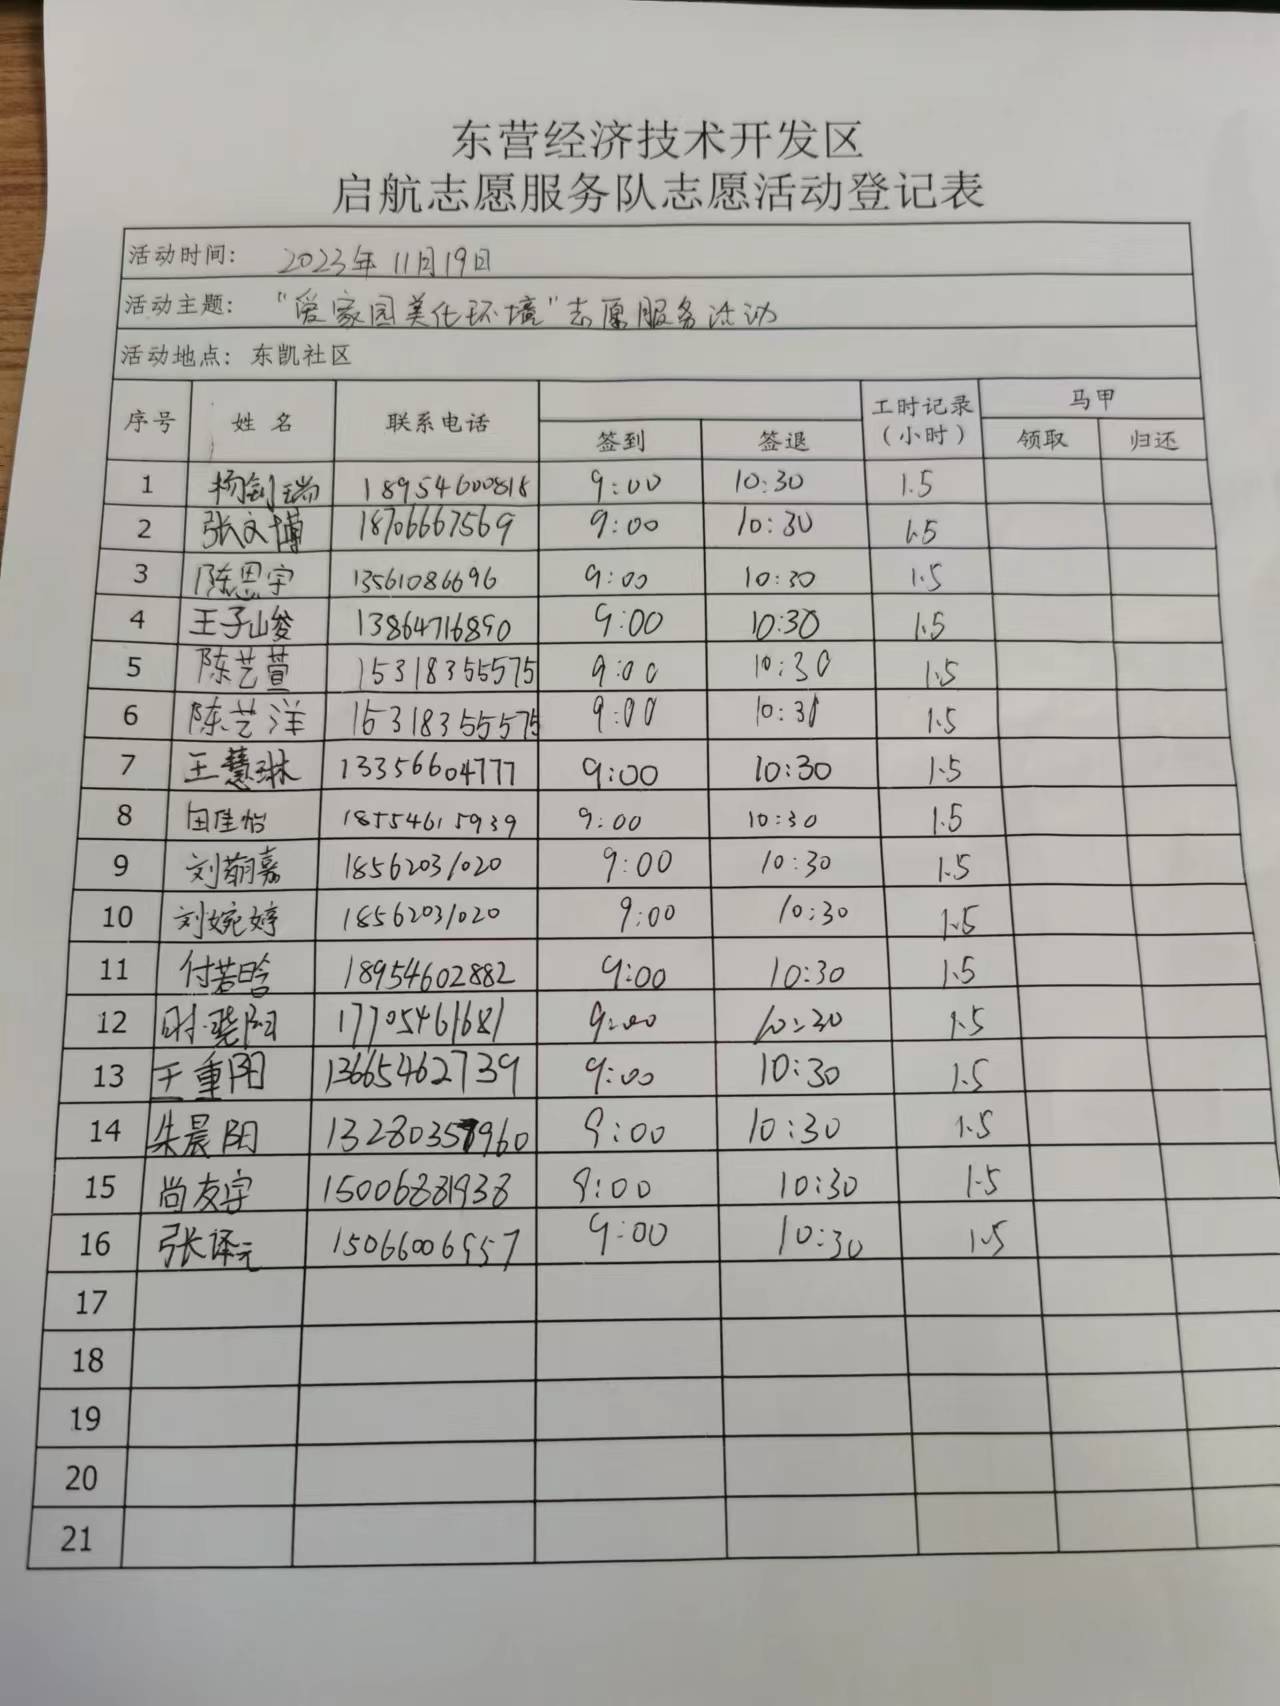 东营经济技术开发区
启航志愿服务队志愿活动登记表
活动时间: 2023年11月19日
活动主题: "爱家园美化环境"志愿服务活动
活动地点: 东凯社区
序号 姓名 联系电话 签到 签退 工时记录(小时) 马甲 领取 归还
1 杨剑瑞 18954600818 9:00 10:30 1.5
2 张文博 18706667569 9:00 10:30 1.5
3 陈恩宇 13561086696 9:00 10:30 1.5
4 王子峻 13864716890 9:00 10:30 1.5
5 陈艺萱 15318355575 9:00 10:30 1.5
6 陈艺洋 15318355575 9:00 10:30 1.5
7 王慧琳 13356604777 9:00 10:30 1.5
8 田佳怡 18554615939 9:00 10:30 1.5
9 刘萌嘉 18562031020 9:00 10:30 1.5
10 刘婉婷 18562031020 9:00 10:30 1.5
11 付若晗 18954602882 9:00 10:30 1.5
12 时晓阳 17705461681 9:00 10:30 1.5
13 王重阳 13665462739 9:00 10:30 1.5
14 朱晨阳 13280357960 9:00 10:30 1.5
15 尚友宇 15006881938 9:00 10:30 1.5
16 张译元 15066006957 9:00 10:30 1.5
17
18
19
20
21